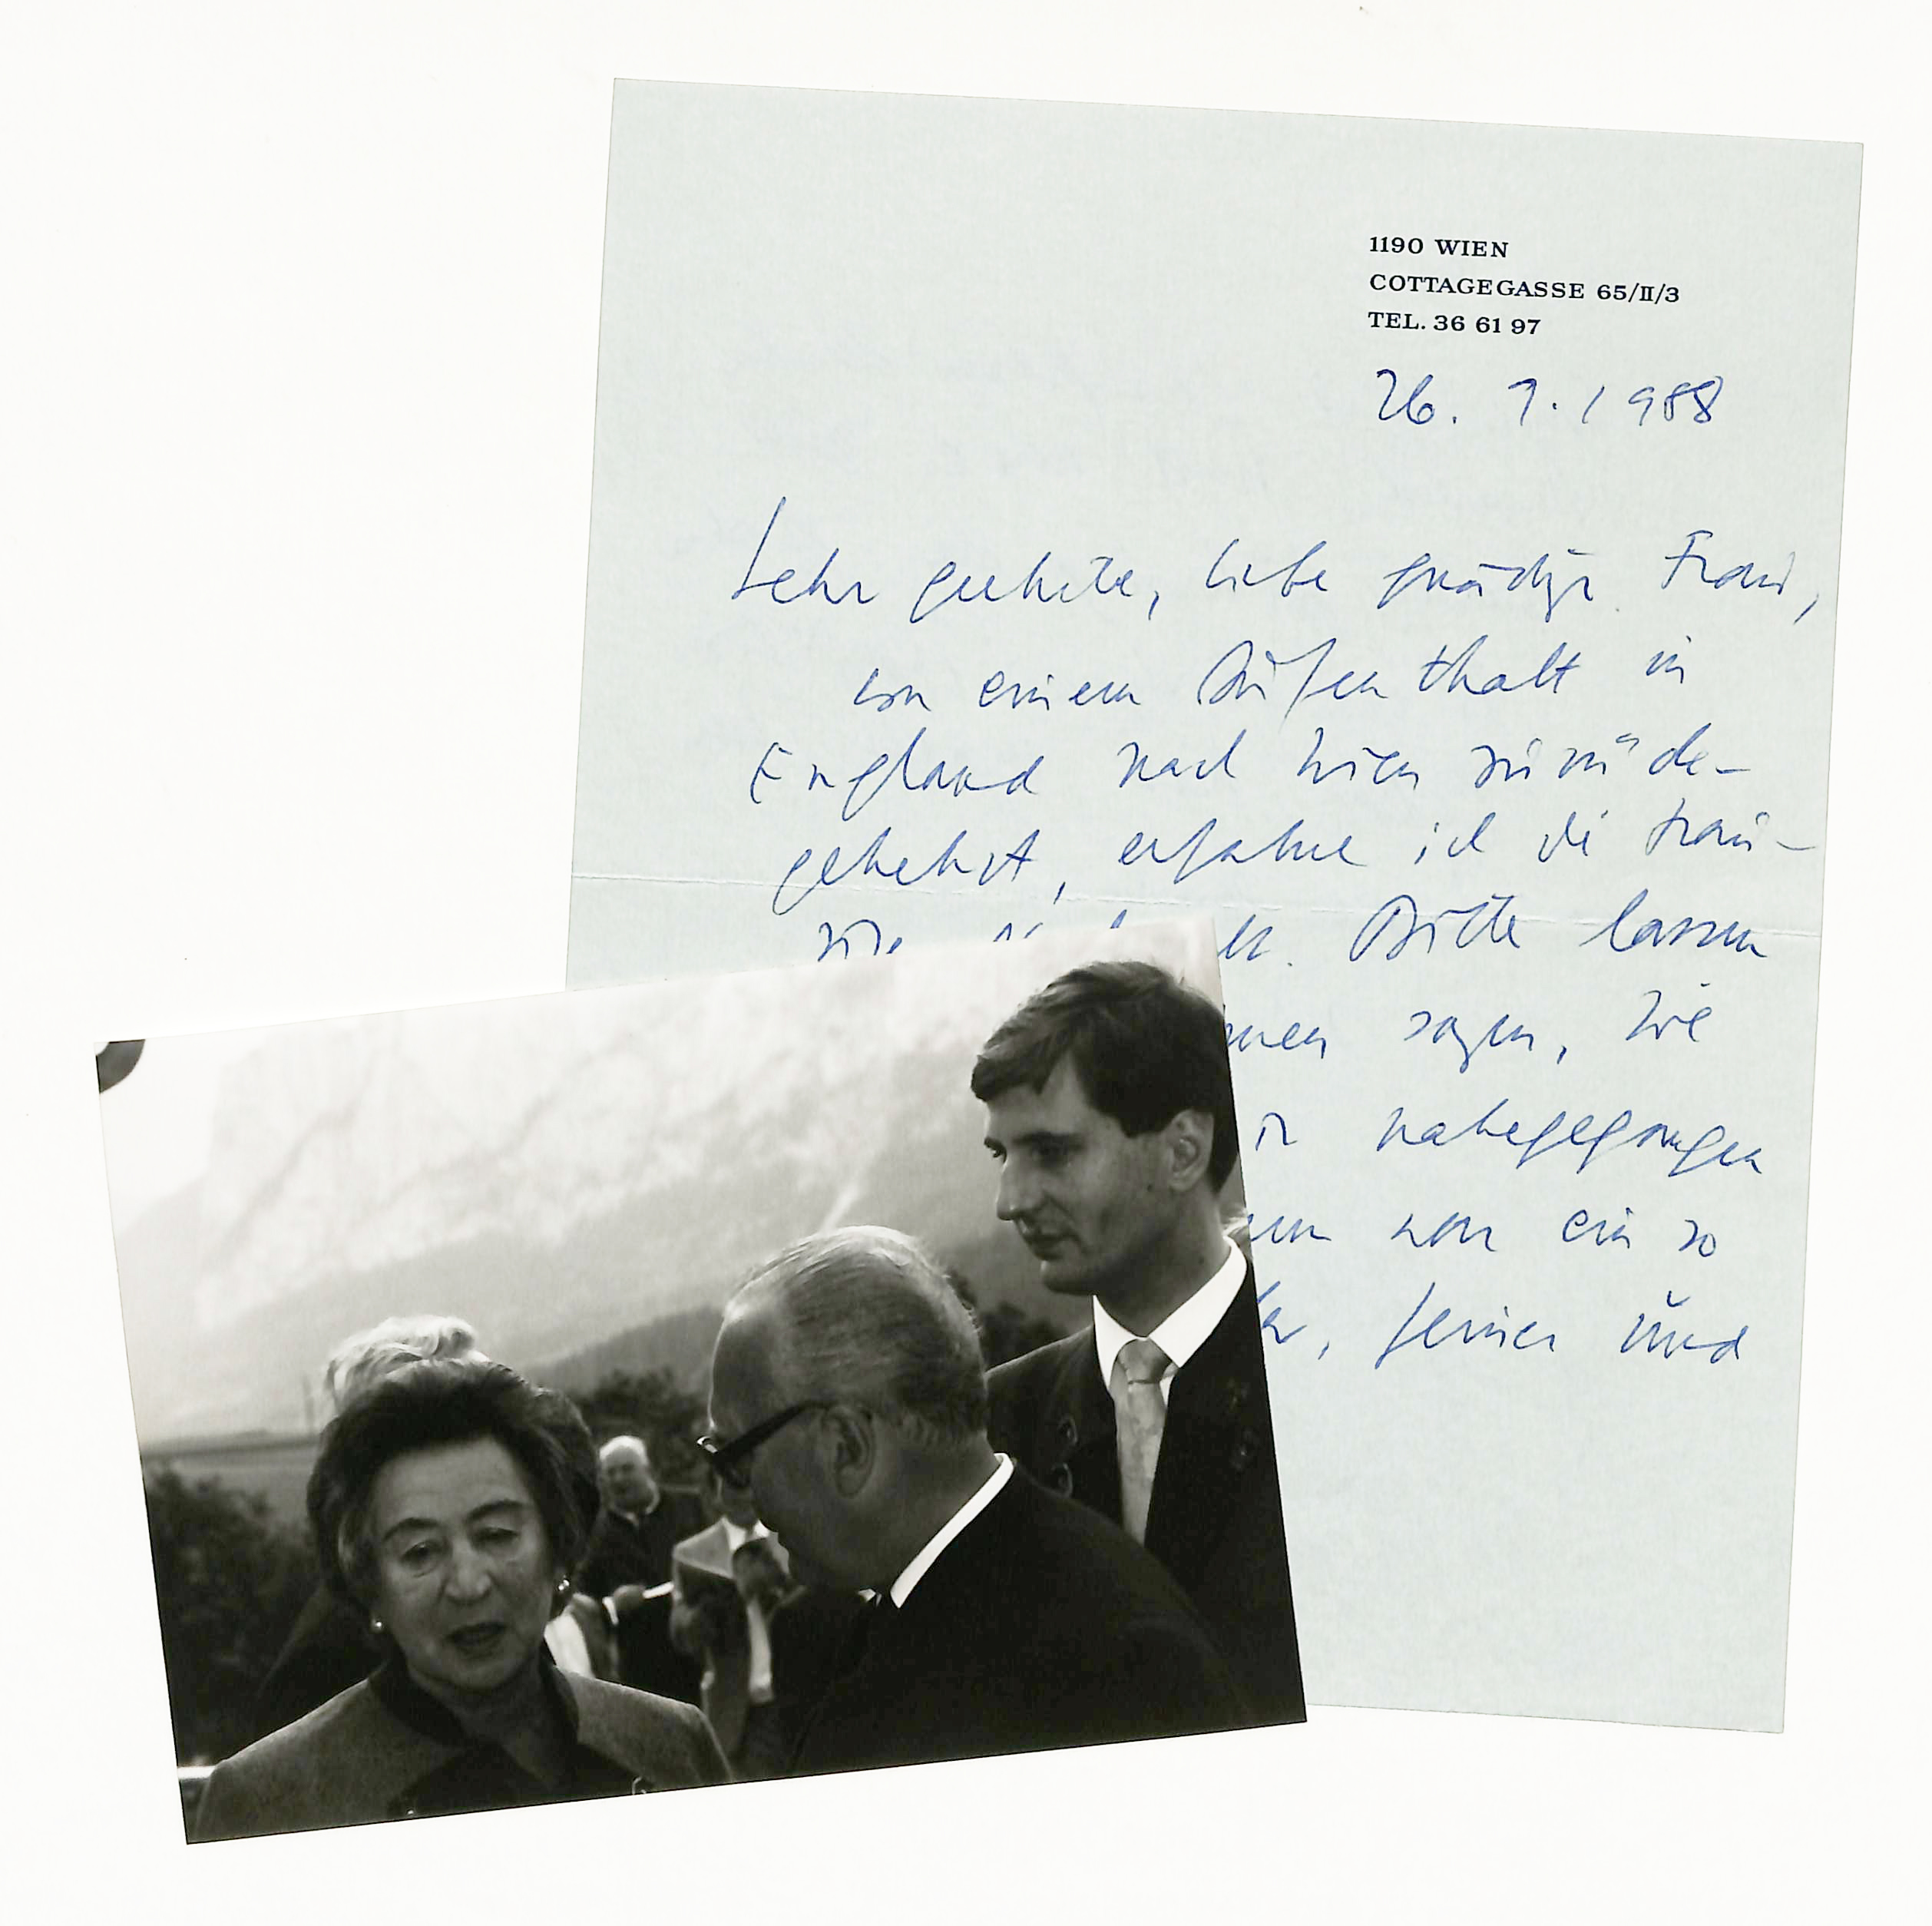 1190 WIEN
COTTAGEGASSE 65/II/3
TEL. 36 61 97
26. 9. 1988
Sehr geehrte, liebe gnädige Frau,
von einem Aufenthalt in
England nach Wien zurücke-
gekehrt, erfahre ich die trau-
Bitte lassen
sagen, wie
nahegegangen
ein so
feiner und